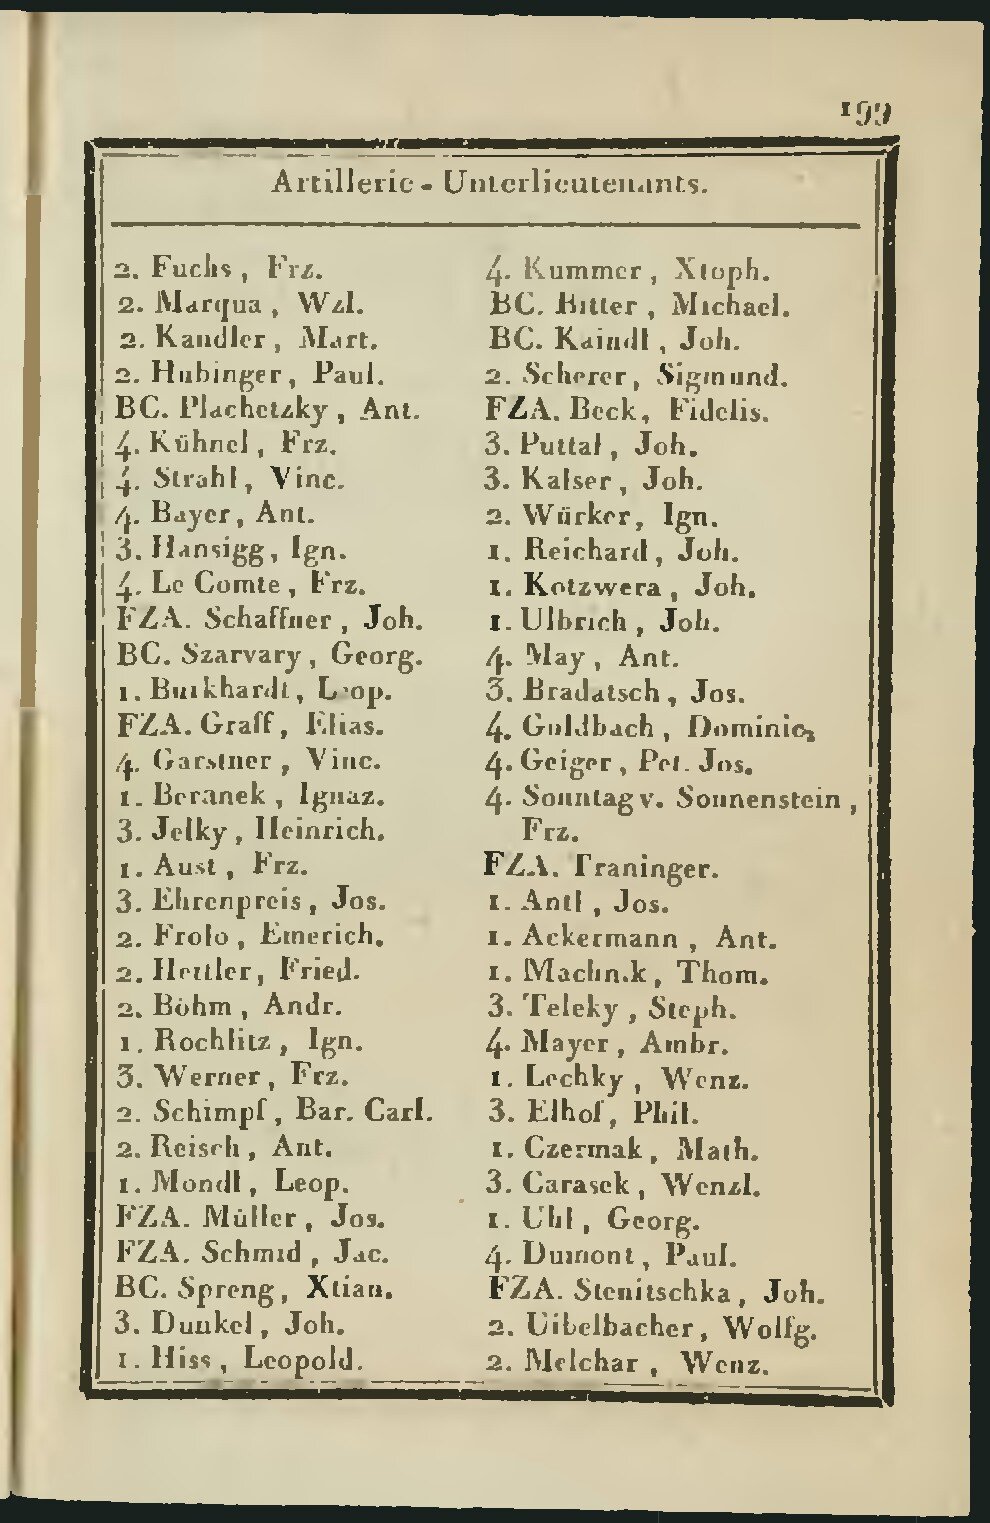 199
Artillerie - Unterlieutenants.
2. Fuchs, Frz.
2. Marqua, Wzl.
2. Kandler, Mart.
2. Hubinger, Paul.
BC. Plachetzky, Ant.
4. Kühnel, Frz.
4. Strahl, Vinc.
4. Bayer, Ant.
3. Hansigg, Ign.
4. Le Comte, Frz.
FZA. Schaffner, Joh.
BC. Szarvary, Georg.
1. Burkhardt, Leop.
FZA. Graff, Elias.
4. Garstner, Vinc.
1. Beranek, Ignaz.
3. Jelky, Heinrich.
1. Aust, Frz.
3. Ehrenpreis, Jos.
2. Frolo, Emerich.
2. Hettler, Fried.
2. Böhm, Andr.
1. Rochlitz, Ign.
3. Werner, Frz.
2. Schimpf, Bar. Carl.
2. Reisch, Ant.
1. Mondl, Leop.
FZA. Müller, Jos.
FZA. Schmid, Jac.
BC. Spreng, Xtian.
3. Dunkel, Joh.
1. Hiss, Leopold.
4. Kummer, Xtoph.
BC. Bitter, Michael.
BC. Kaindl, Joh.
2. Scherer, Sigmund.
FZA. Beck, Fidelis.
3. Puttal, Joh.
3. Kalser, Joh.
2. Würker, Ign.
1. Reichard, Joh.
1. Kotzwera, Joh.
1. Ulbrich, Joh.
4. May, Ant.
3. Bradatsch, Jos.
4. Goldbach, Dominic.
4. Geiger, Pet. Jos.
4. Sonntag v. Sonnenstein,
Frz.
FZA. Traninger.
1. Antl, Jos.
1. Ackermann, Ant.
1. Thom.
3. Teleky, Steph.
4. Mayer, Ambr.
1. Lechky, Wenz.
3. Elhof, Phil.
1. Czermak, Math.
3. Carasek, Wenzl.
1. Uhl, Georg.
4. Dumont, Paul.
FZA. Stenitschka, Joh.
2. Uibelbacher, Wolfg.
2. Melchar, Wenz.